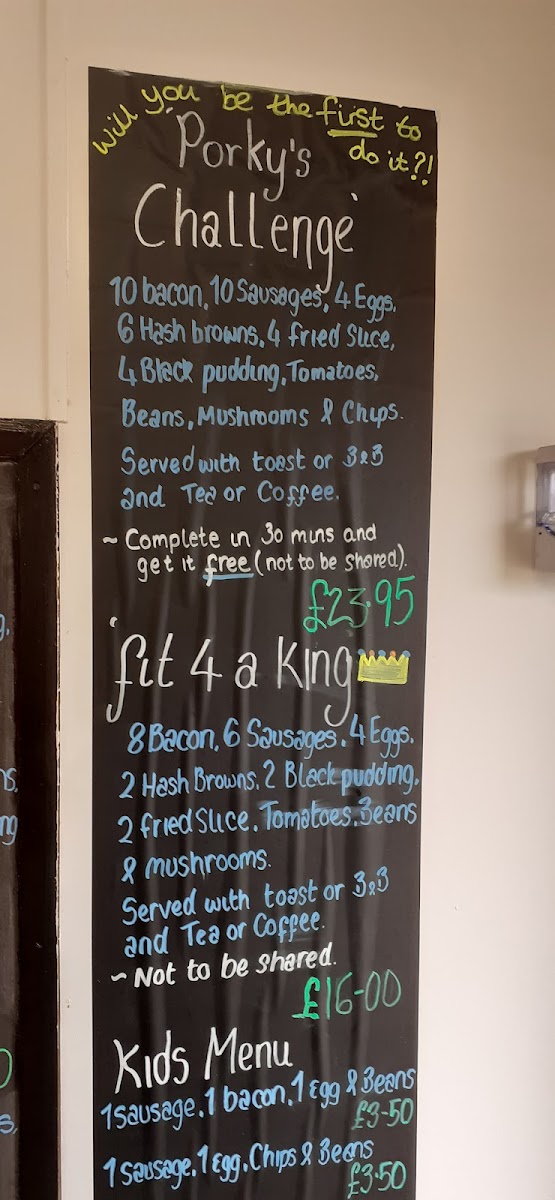 Will you be the first to
do it?!
'Porky's
Challenge'
10 bacon, 10 Sausages, 4 Eggs,
6 Hash browns, 4 fried Slice,
4 Black pudding, Tomatoes,
Beans, Mushrooms & Chips.
Served with toast or B&B
and Tea or Coffee.
~ Complete in 30 mins and
get it free (not to be shared).
£23.95
'fit 4 a King
8 Bacon, 6 Sausages, 4 Eggs,
2 Hash Browns, 2 Black pudding,
2 fried Slice, Tomatoes, Beans
& mushrooms.
Served with toast or B&B
and Tea or Coffee.
~ Not to be shared.
£16-00
Kids Menu
1 Sausage, 1 bacon, 1 Egg & Beans
£3-50
1 Sausage, 1 Egg, Chips & Beans
£3.50